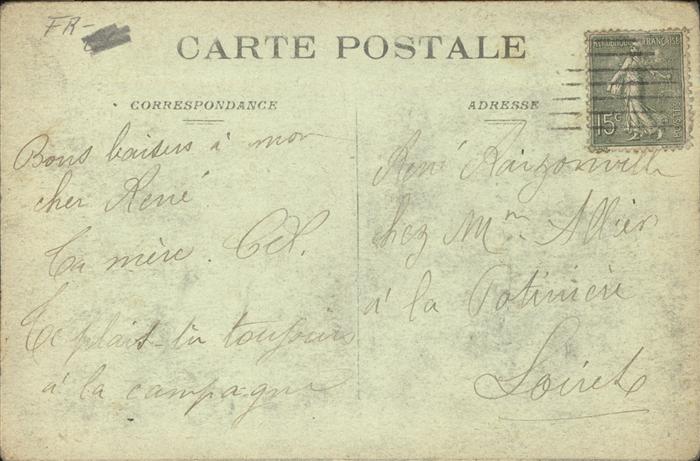 FR-
CARTE POSTALE
CORRESPONDANCE
ADRESSE
15c
Bons baisers à mon
cher René
Ta mère. Cél.
Te plais-tu toujours
à la campagne
René
chez Mme Allier
à la Potinière
Loiret